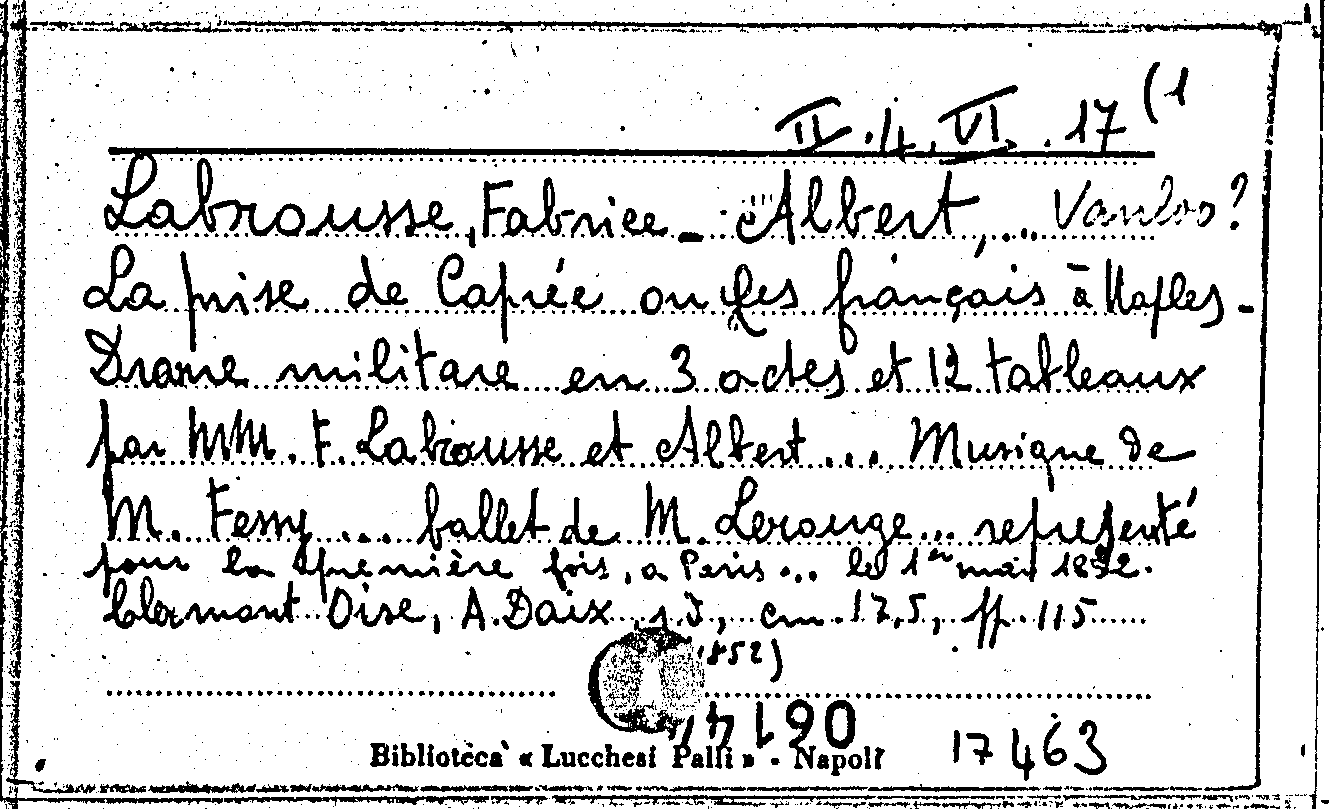 II.4.VI.17(1
Labrousse, Fabrice - Albert,... Vanloo?
La prise de Caprée ou les français à Naples -
Drame militare en 3 actes et 12 tableaux
par MM. F. Labrousse et Albert... Musique de
M. Fessy... ballet de M. Lerouge... representé
pour la première fois, a Paris... le 1er mai 1852.
Clermont Oise, A. Daix, s.d., cm. 17,5, pp. 115
852)
06144
Biblioteca « Lucchesi Palli » - Napoli 17463